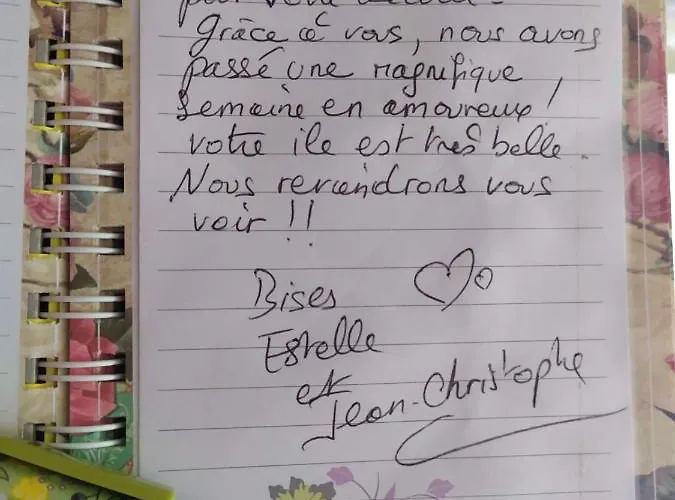 pour votre accueil.
Grâce à vous, nous avons
passé une magnifique
semaine en amoureux !
votre ile est très belle.
Nous reviendrons vous
voir !!
Bises
Estelle
et
Jean-Christophe